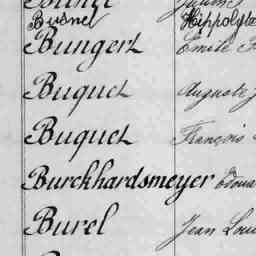 Busnel Hippolyte
Bungert Emile
Buquet Auguste
Buquet François
Burckhardsmeyer Edoua
Burel Jean Loui